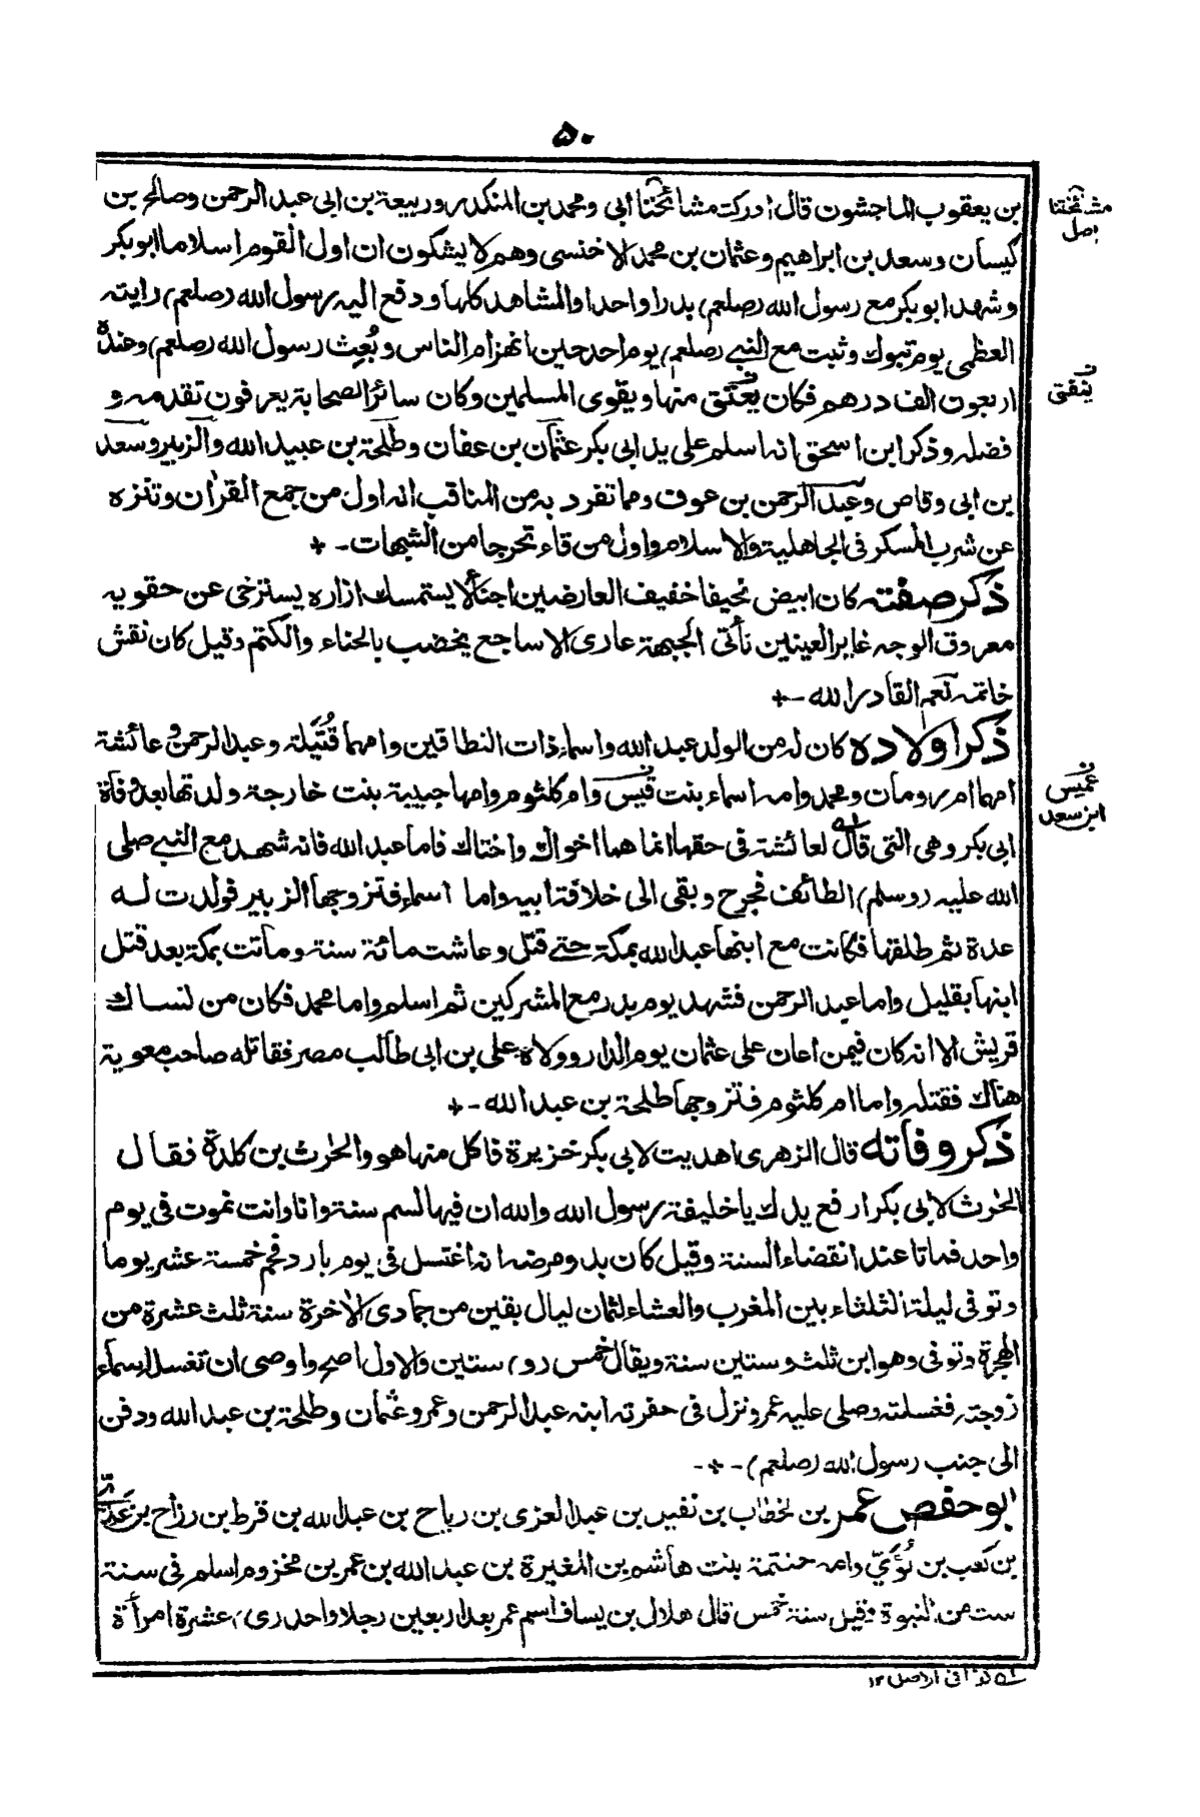 ۵۰
بن يعقوب الماجشون قال ادركت مشائخنا أبي ومحمد بن المنكدر وربيعة بن ابى عبد الرحمن وصالح بن
كيسان وسعد بن ابراهيم وعثمان بن محمد الاخنسى وهم لا يشكون ان اول القوم اسلاما ابو بكر
وشهد ابو بكر مع رسول الله (صلعم) بدرا واحدا والمشاهد كلها ودفع اليه رسول الله (صلعم) رايته
العظمى يوم تبوك وثبت مع النبي (صلعم) يوم احد حين انهزم الناس وبُعِث رسول الله (صلعم) وعنده
اربعون الف درهم فكان يعتق منها ويقوى المسلمين وكان سائر الصحابة يعرفون تقدمه و
فضله وذكر ابن اسحق انه اسلم على يد ابى بكر عثمان بن عفان وطلحة بن عبيد الله والزبير وسعد
بن ابى وقاص وعبد الرحمن بن عوف ومما تفرد به من المناقب انه اول من جمع القرآن وتنزه
عن شرب المسكر فى الجاهلية والاسلام واول من قاء تحرجا من الشبهات - +
ذكر صفته كان ابيض نحيفا خفيف العارضين اجنأ لا يستمسك ازاره يسترخى عن حقويه
معروق الوجه غاير العينين ناتى الجبهة عارى الاشاجع يخضب بالحناء والكتم وقيل كان نقش
خاتمه نعم القادر الله -+
ذكر اولاده كان له من الولد عبد الله واسماء ذات النطاقين وامهما قُتَيلة وعبد الرحمن وعائشة
امهما ام رومان ومحمد وامه اسماء بنت قيس وام كلثوم وامها حبيبة بنت خارجة ولدتها بعد وفاة
ابى بكر وهى التى قال لعائشة فى حقها انما هما اخواك واختاك فاما عبد الله فانه شهد مع النبي صلى
الله عليه (وسلم) الطائف فجرح وبقى الى خلافة ابيه واما اسماء فتزوجها الزبير فولدت له
عدة ثم طلقها فكانت مع ابنها عبد الله بمكة حتے قتل وعاشت مائة سنة وماتت بمكة بعد قتل
ابنها بقليل واما عبد الرحمن فشهد يوم بدر مع المشركين ثم اسلم واما محمد فكان من نساك
قريش الا انه كان فيمن اعان على عثمان يوم الدار وولاه على بن ابى طالب مصر فقاتله صاحب معوية
هناك فقتله واما ام كلثوم فتزوجها طلحة بن عبد الله -+
ذكر وفاته قال الزهرى اهديت لابى بكر خزيرة فاكل منها هو والحٰرث بن كلدة فقال
الحٰرث لابى بكر ارفع يدك يا خليفة رسول الله والله ان فيها لسم سنة وانا وانت نموت فى يوم
واحد فماتا عند انقضاء السنة وقيل كان بدو مرضه انه اغتسل فى يوم بارد فحم خمسة عشر يوما
وتوفى ليلة الثلثاء بين المغرب والعشاء لثمان ليال بقين من جمادى الآخرة سنة ثلث عشرة من
الهجرة وتوفى وهو ابن ثلث وستين سنة ويقال خمس (و) ستين والاول اصح واوصى ان تغسله اسماء
زوجته فغسلته وصلى عليه عمر ونزل فى حفرته ابنه عبد الرحمن وعمر وعثمان وطلحة بن عبد الله ودفن
الى جنب رسول الله (صلعم) - + -
ابو حفص عمر بن الخطاب بن نفيل بن عبد العزى بن رياح بن عبد الله بن قرط بن رزاح بن عدى
بن كعب بن لُؤَيّ وامه حنتمة بنت هاشم بن المغيرة بن عبد الله بن عمر بن مخزوم اسلم فى سنة
ست من النبوة وقيل سنة خمس قال هلال بن يساف اسلم عمر بعد اربعين رجلا واحدى عشرة امرأة
مشيختنا
اصل
ينفق
عميس
ابن سعد